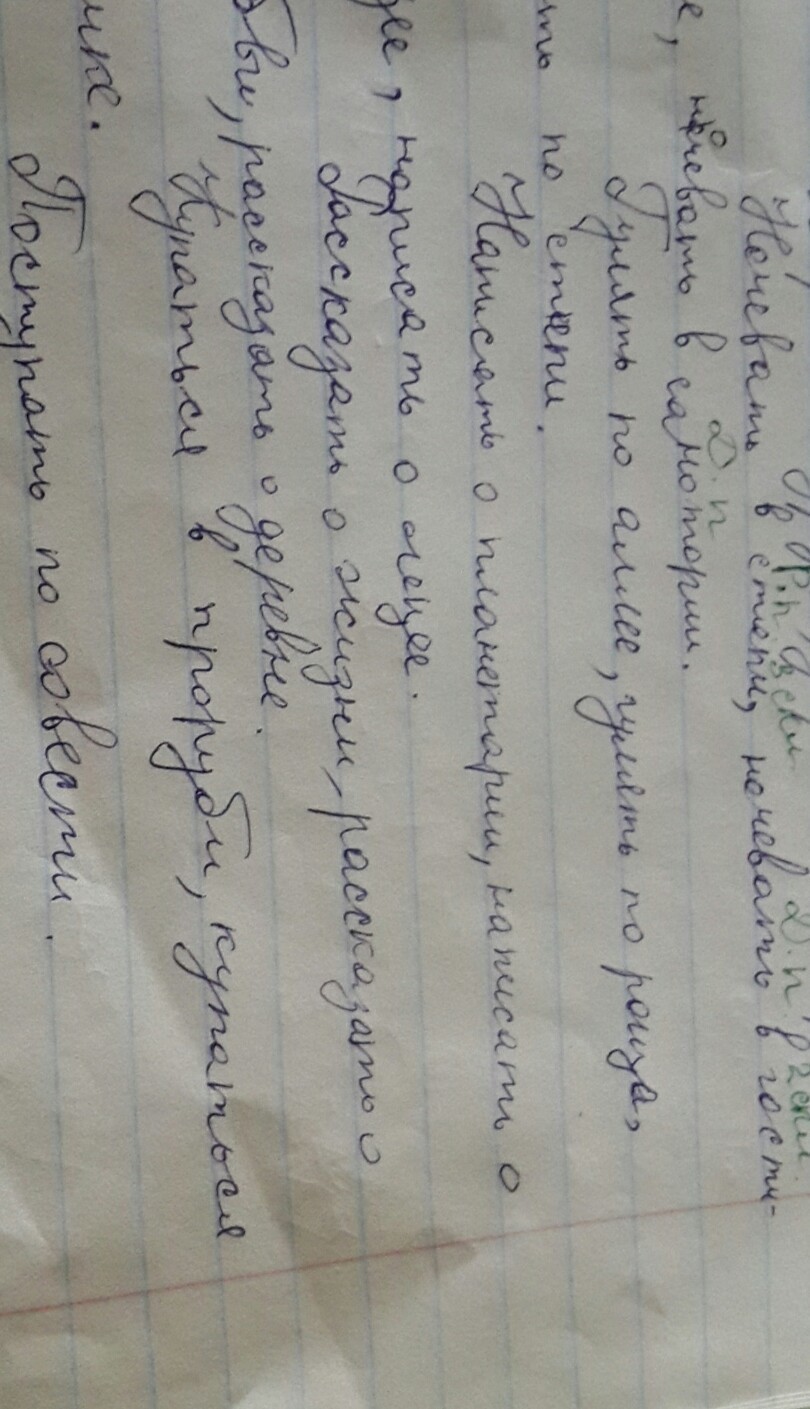 Пр П.п. 3 скл. Д.п. 2 скл.
Ночевать в степи, ночевать в гости-
е, ночевать в санотории.
Д.п
Гулять по аллее, гулять по роще,
ть по степи.
Написать о планетарии, написать о
ее, написать о
Рассказать о жизни, рассказать о
бви, рассказать о деревне.
Купаться в проруби, купаться
ике.
Поступать по совести.